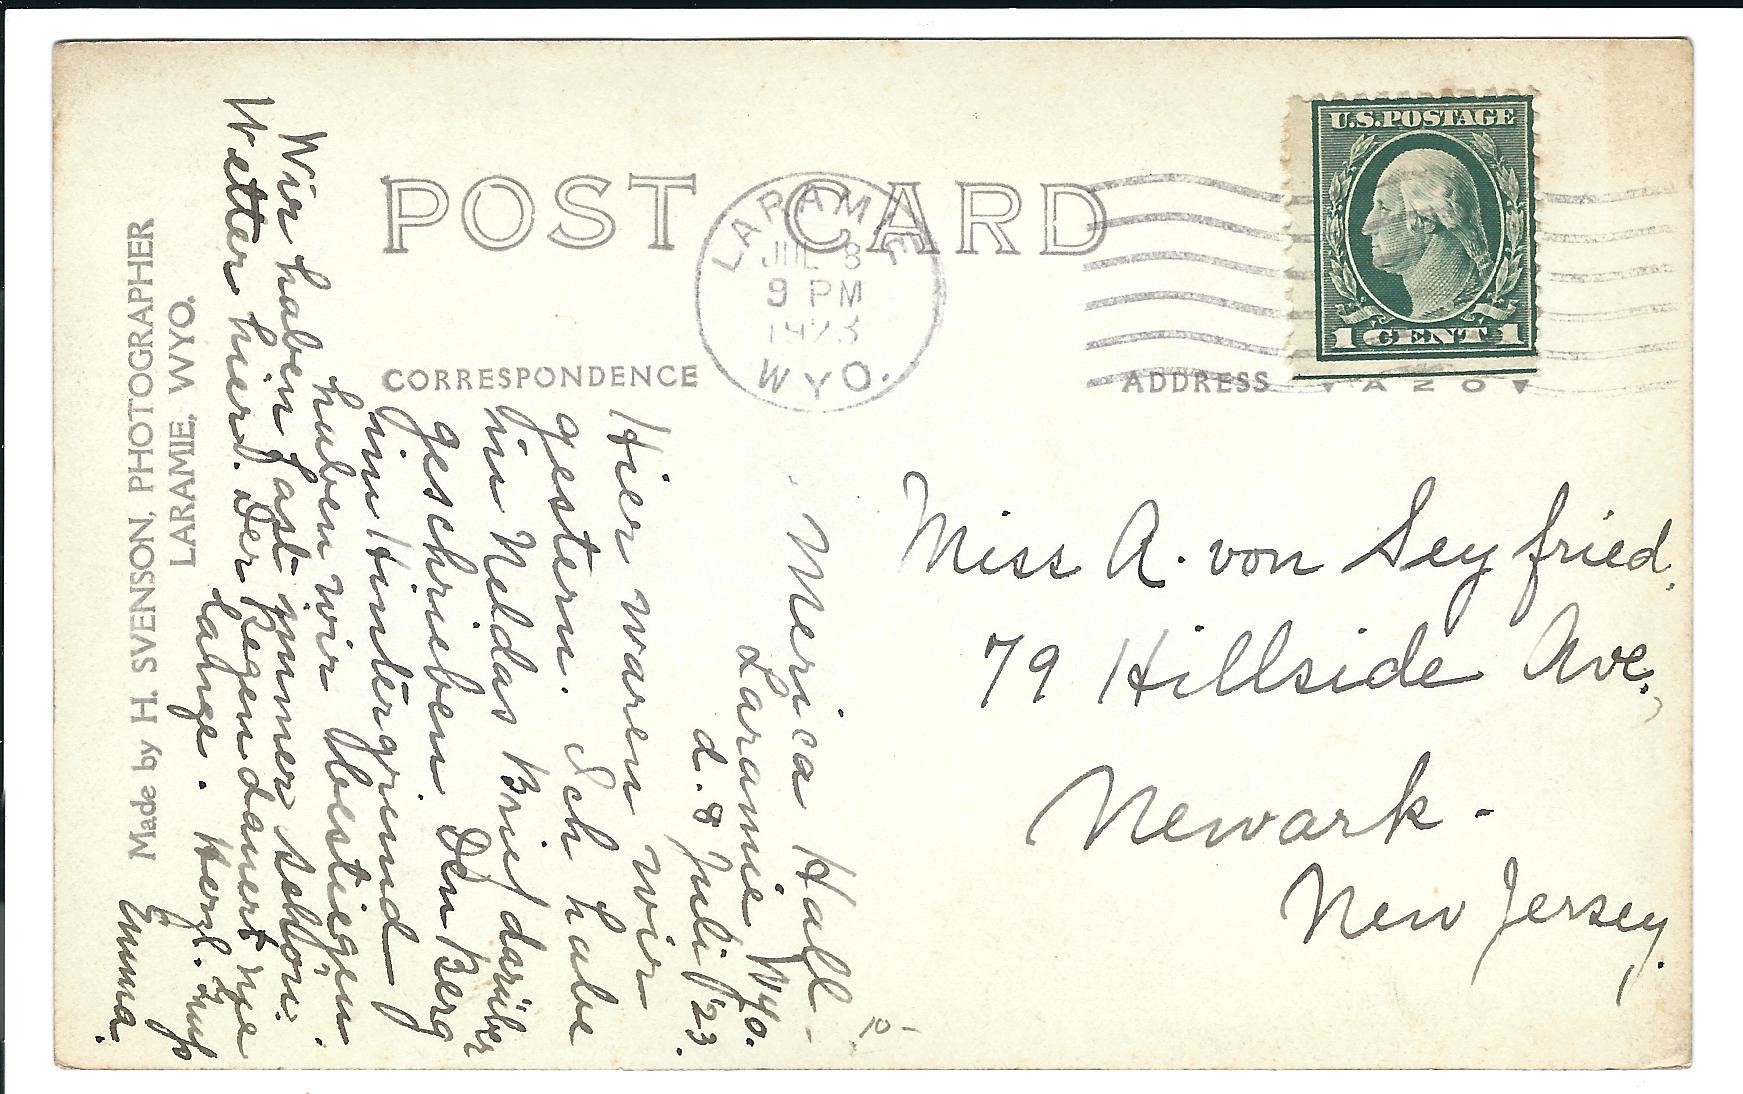 POST CARD
LARAMIE
JUL 8
9 PM
1923
WYO.
U.S. POSTAGE
1 CENT 1
CORRESPONDENCE
ADDRESS
AZO
Made by H. SVENSON, PHOTOGRAPHER
LARAMIE, WYO.
Miss A. von Seyfried,
79 Hillside Ave.,
Newark -
New Jersey.
Merica Hall -
Laramie Wyo.
d. 8 Juli '23.
Hier waren wir
gestern. Ich habe
in Neldas Brief darüber
geschrieben. Den Berg
im Hintergrund
haben wir bestiegen.
Wir haben fast immer schön.
Wetter hier. Der Regen dauert nie
lange. Herzl. Gruß
Emma.
10-